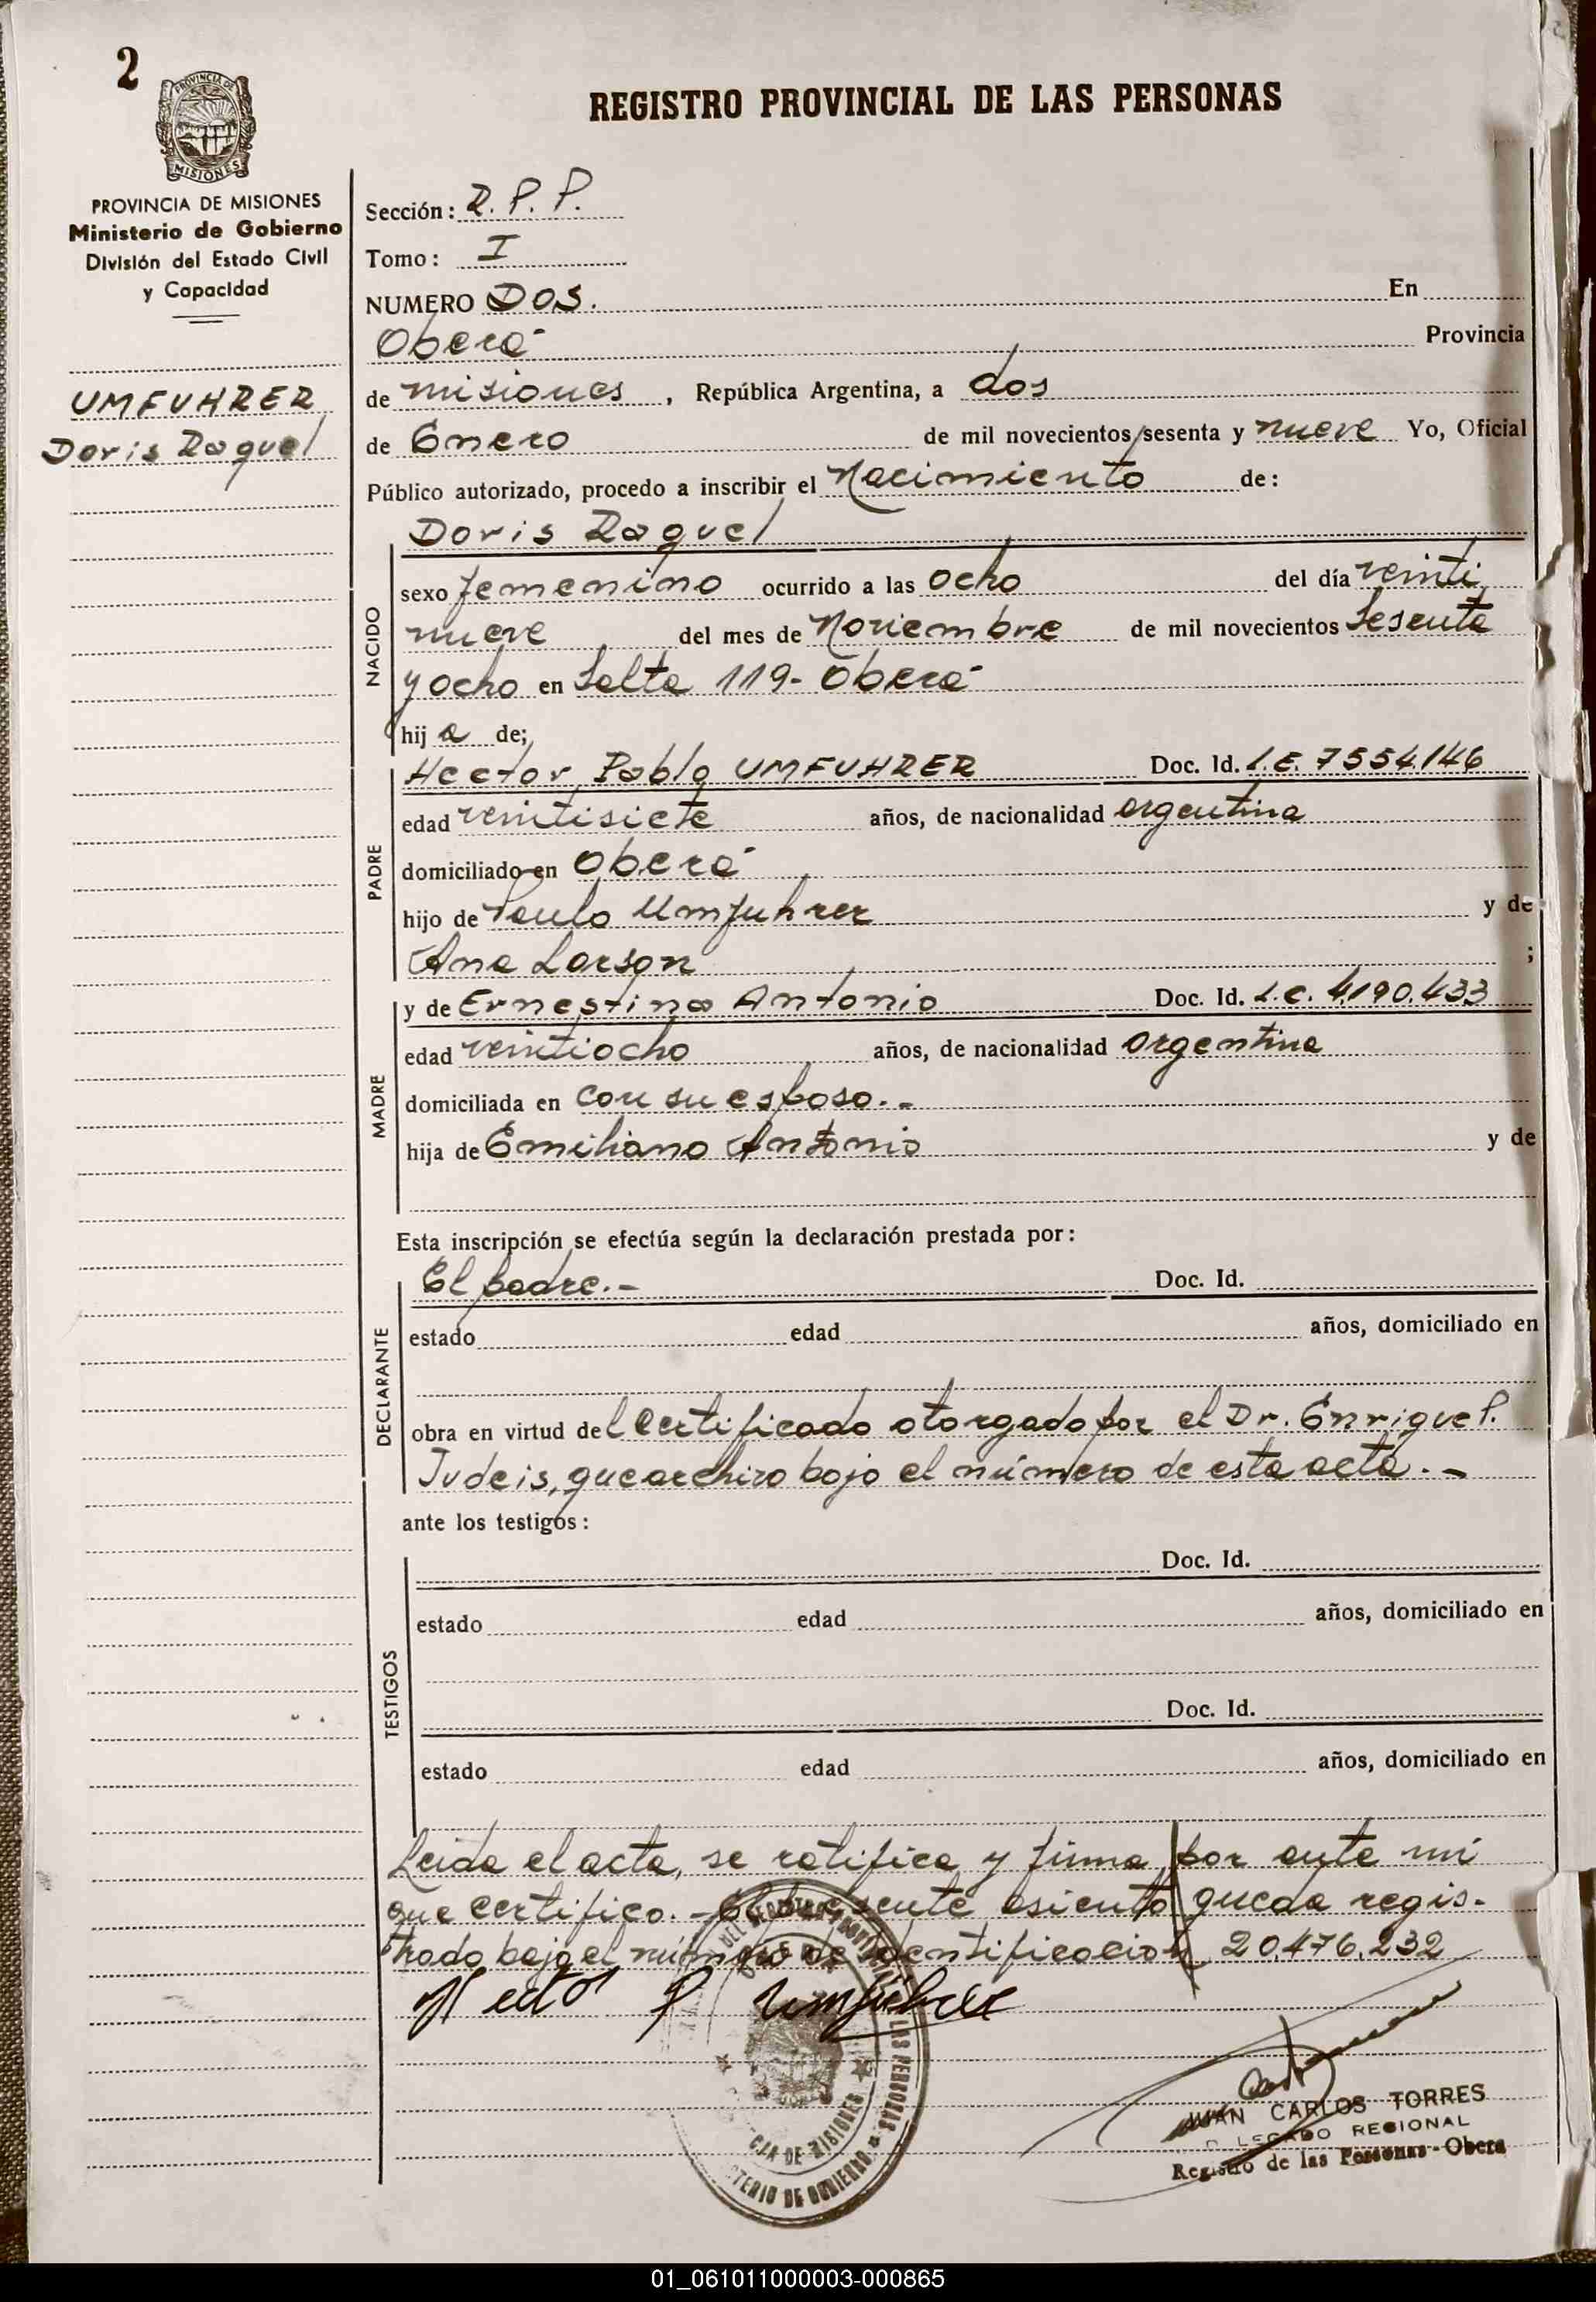 2
PROVINCIA DE
MISIONES
REGISTRO PROVINCIAL DE LAS PERSONAS
PROVINCIA DE MISIONES
Ministerio de Gobierno
División del Estado Civil
y Capacidad
UMFUHRER
Doris Raquel
Sección: R. P. P.
Tomo: I
NUMERO DOS. En
Oberá Provincia
de misiones, República Argentina, a dos
de Enero de mil novecientos sesenta y nueve Yo, Oficial
Público autorizado, procedo a inscribir el Nacimiento de:
Doris Raquel
NACIDO
sexo femenino ocurrido a las ocho del día veinti
nueve del mes de Noviembre de mil novecientos Sesenta
y ocho en Salta 119- Oberá
hij a de;
PADRE
Hector Pablo UMFUHRER Doc. Id. L.E. 7554.146
edad veintisiete años, de nacionalidad argentina
domiciliado en Oberá
hijo de Paulo Umfuhrer y de
Ana Larson ;
MADRE
y de Ernestina Antonio Doc. Id. L.C. 4.190.433
edad veintiocho años, de nacionalidad argentina
domiciliada en con su esposo.-
hija de Emiliano Antonio y de
Esta inscripción se efectúa según la declaración prestada por:
DECLARANTE
El padre.- Doc. Id.
estado edad años, domiciliado en
obra en virtud del Certificado otorgado por el Dr. Enrique P.
Judeis, que archivo bajo el número de esta acta.-
ante los testigos:
TESTIGOS
Doc. Id.
estado edad años, domiciliado en
Doc. Id.
estado edad años, domiciliado en
Leida el acta, se ratifica y firma, por ante mí
que certifico.- El presente asiento queda regis-
trado bajo el número de identificación 20.476.232
Hector P Umfuhrer
JUAN CARLOS TORRES
DELEGADO REGIONAL
Registro de las Personas - Obera
01_061011000003-000865